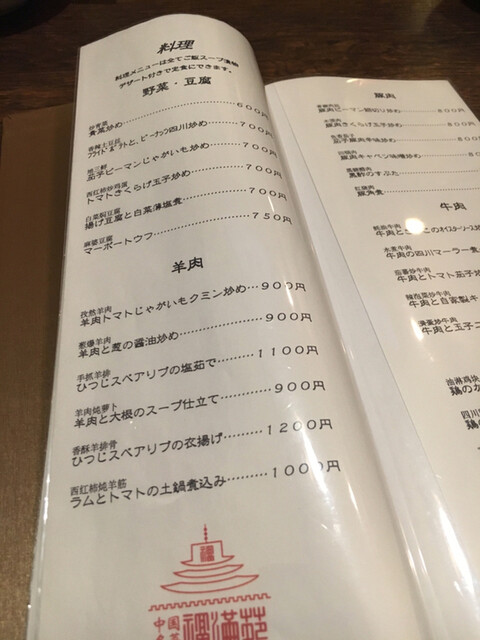 料理
料理メニューは全てご飯スープ漬物
デザート付きで定食にできます。
野菜・豆腐
青菜炒め……600円
香辣土豆花
フライドポテトと、ピーナッツ四川炒め……700円
地三鮮
茄子ピーマンじゃがいも炒め……700円
西红柿炒鸡蛋
トマトきくらげ玉子炒め……700円
白菜焖豆腐
揚げ豆腐と白菜薄塩煮……700円
麻婆豆腐
マーボートウフ……750円
羊肉
孜然羊肉
羊肉トマトじゃがいもクミン炒め…900円
葱爆羊肉
羊肉と葱の醤油炒め……900円
手抓羊排
ひつじスペアリブの塩茹で……1100円
羊肉炖萝卜
羊肉と大根のスープ仕立て……900円
香酥羊排骨
ひつじスペアリブの衣揚げ……1200円
西红柿炖羊筋
ラムとトマトの土鍋煮込み……1000円
福
中国
福満苑
豚肉
豚肉ピーマン細切り炒め……800円
木须肉
豚肉きくらげ玉子炒め……800円
茄子豚肉辛味炒め……800円
回锅肉
豚肉キャベツ味噌炒め……800円
黒酢のすぶた
红烧肉
豚肉角煮
牛肉
蚝油牛肉
牛肉ときのこのオイスターソース炒
水煮牛肉
牛肉の四川マーラー煮
茄番炒牛肉
牛肉とトマト茄子炒
辣泡菜炒牛肉
牛肉と自家製キ
滑蛋炒牛肉
牛肉と玉子ニ
油淋鸡块
鶏のか
四川
鶏肉